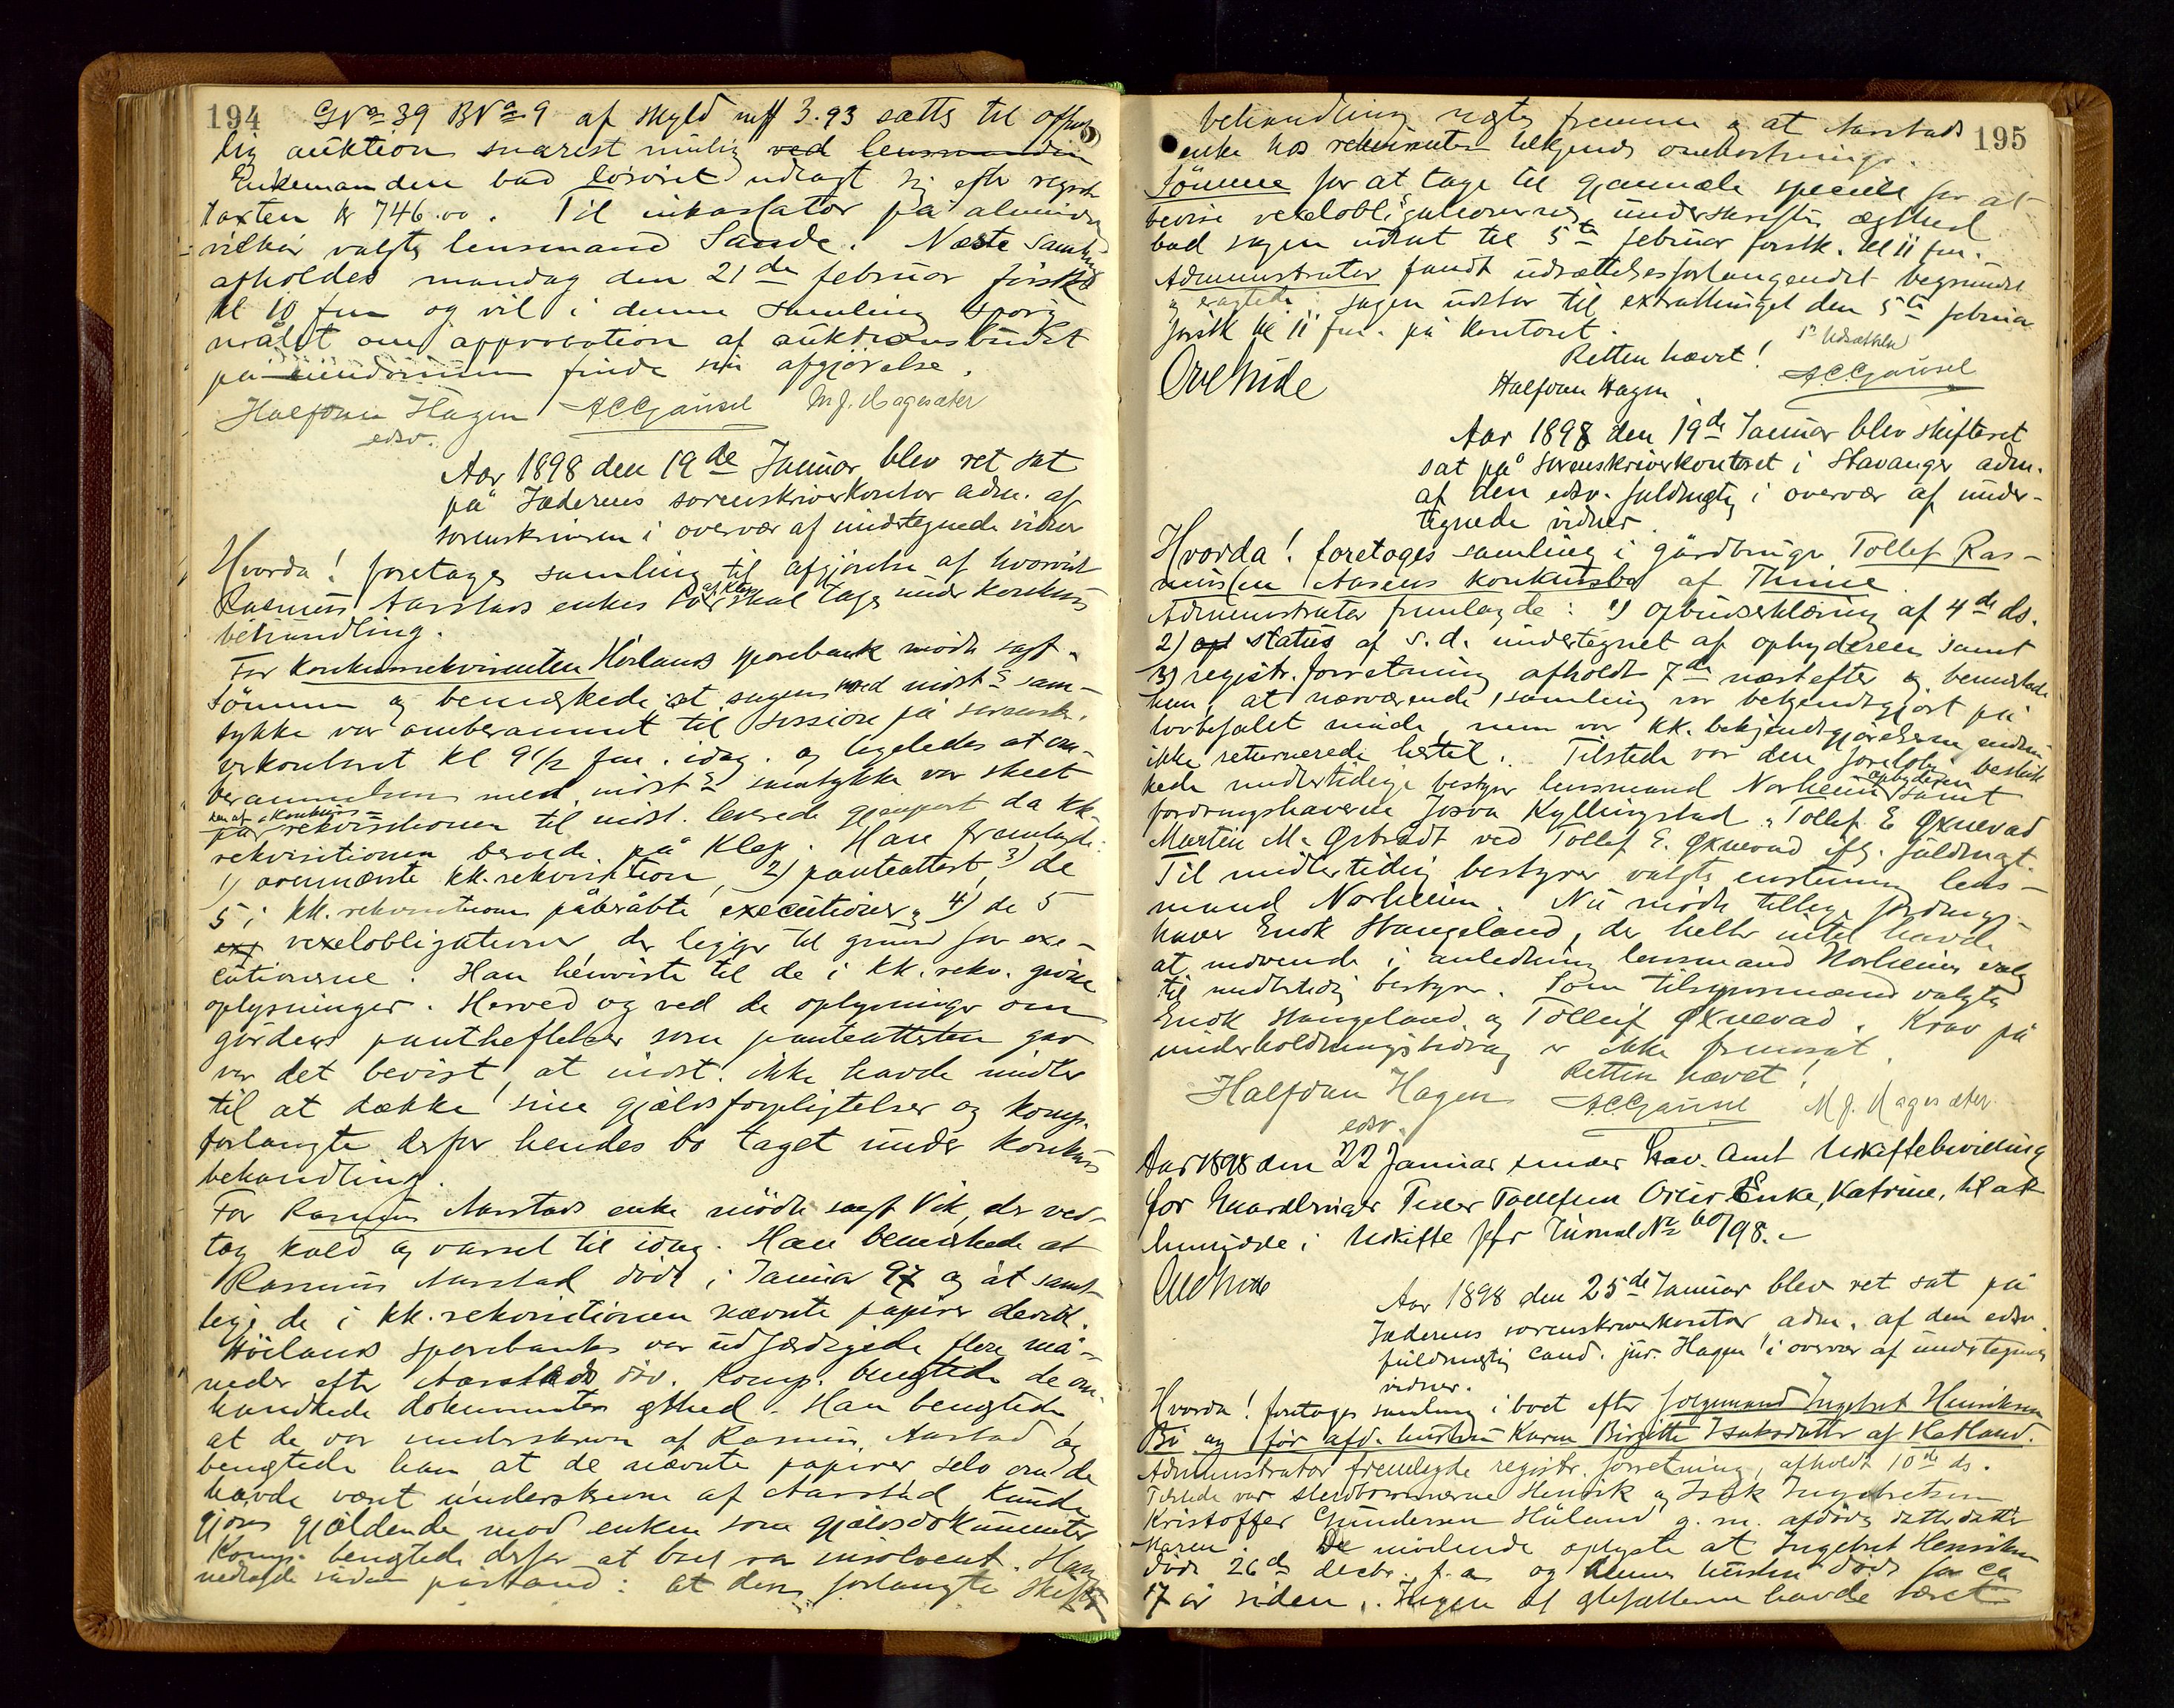 194
GNo 39 BNo 9 af skyld mff 3.93 sættes til offent
lig auktion snarest mulig ved lensmanden
Enkemanden bad løsøret udlagt sig efter registr
taxten kr 746.00. Til inkassator på almindel
vilkår valgtes lensmand Sande. Næste samling
afholdes mandag den 21de februar førstk
kl 10 fm og vil i denne samling spørgs
målet om approbation af auktionsbudet
på eiendommen finde sin afgjørelse.
Halfdan Hagen ACGjausel M J. Hagesæter
edsv.
Aar 1898 den 19de Januar blev ret sat
på Jæderens sorenskriverkontor adm. af
sorenskriveren i overvær af undertegnede vidner
Hvorda! foretages samling til afgjørelse af hvorvidt
Rasmus Aarstads enkes bo skal tages under konkurs
behandling.
For konkursrekvirenten Høilands sparebank mødte sagf.
Sømme og bemærkede at sagen med indst.s sam-
tykke var omberammet til session på sorenskr.
verkontoret kl 9 1/2 fm. idag. og ligeledes at om-
berammelsen med indst.s samtykke var skeet
på rekvisitionen til indst. leverede gjenpart da kk.
rekvisitionen beroede på Klep. Han fremlagde:
1) ovennævnte kk. rekvisition, 2) panteattest, 3) de
5 i kk. rekvisitionen påberåbte executioner, 4) de 5
exf vexelobligationer, der ligger til grund for exe-
cutionerne. Han henviste til de i kk. rekv. givne
oplysninger. Herved og ved de oplysninger om
gårdens pantheftelser som panteattesten gav
var det bevist, at indst. ikke havde midler
til at dække sine gjældsforpligtelser og komp.
forlangte derfor hendes bo taget under konkurs
behandling.
For Rasmus Aarstads enke mødte sagf Vik, der ved-
tog kald og varsel til idag. Han bemærkede at
Rasmus Aarstad døde i Januar 97 og at samt-
lige de i kk. rekvisitionen nævnte papirer
Høilands sparebank var udfærdigede flere må-
neder efter Aarstads død. Komp. benegtede de om-
handlede dokumenters ægthed. Han benegtede
at de var underskrevne af Rasmus Aarstad og
benegtede han at de nævnte papirer selv om de
havde været underskrevne af Aarstad kunde
gjøres gjældende mod enken som gjældsdokumenter
Komp. benegtede derfor at boet var insolvent. Han
nedlagde sådan påstand: at den forlangte skifte
195
behandling nægtes fremme og at Aarstads
enke hos rekvirenten tilkjendes omkostninger.
Sømme for at tage til gjenmæle specielt for at
bevise vexelobligationernes underskrifters ægthed
bad sagen udsat til 5te februar førstk. kl 11 fm.
Administrator fandt udsættelsesforlangendet begrundet
og eragtede: sagen udstår til extraretthinget den 5te februar
førstk kl 11 fm. på kontoret.
Retten hævet!
Ove Hvide Halfdan Hagen ACGjausel
Aar 1898 den 19de Januar blev skifteret
sat på sorenskriverkontoret i Stavanger adm.
af den edsv. fuldmægtig i overvær af under-
tegnede vidner.
Hvorda! foretages samling i gårdbruger Tollef Ras-
mussen Aasens konkursbo af Thime
Administrator fremlagde: 1) opbudserklæring af 4de ds.
2) opf status af s.d. undertegnet af opbyderen samt
3) registr. forretning afholdt 7de næstefter og bemærkede
han, at nærværende samling var bekjendtgjort på
lovbefalet måde, men var kk. bekjendtgjørelserne endnu
ikke returnerede hertil. Tilstede var den foreløbig beskik
kede midlertidige bestyrer lensmand Norheim opbyderen samt
fordringshaverne Josva Kyllingstad, Tollef E Øxnevad
Martin M. Orstadt ved Tollef E. Øxnevad iflg. fuldmagt.
Til midlertidig bestyrer valgtes enstemmig lens-
mand Norheim. Nu mødte tillige fordrings-
haver Enok Stangeland, der heller intet havde
at indvende i anledning lensmand Norheims valg
til midlertidig bestyrer. Som tilsynsmænd valgtes
Enok Stangeland og Tollef Øxnevad. Krav på
underholdningsbidrag er ikke fremsat.
Retten hævet!
Halfdan Hagen ACGjausel M J. Hagesæter
edsv.
Aar 1898 den 22 Januar sender Stav. Amt Uskiftebevilling
for Gaardbruger Peder Tollefsen Enke, Katrine, til at
hensidde i Uskifte jefr Jurnal No 60/98.
Ove Hvide
Aar 1898 den 25de Januar blev ret sat på
Jæderens sorenskriverkontor adm. af den edsv.
fuldmægtig cand. jur. Hagen i overvær af undertegnede
vidner.
Hvorda! foretages samling i boet efter folgemand Ingebret Henriksen
Bø og før afd. hustru Karen Birgitte Isaksdatter af Hetland.
Administrator fremlagde registr. forretning, afholdt 10de ds.
Tilstede var stedbørnene Henrik og Isak Ingebretsen
Kristoffer Gundersen Håland g. m. afdødes datterdatter
Maren. De mødende oplyste at Ingebret Henriksen
døde 26de decbr. f. a. og denne hustru døde for ca
17 år siden. Ingen af ægtefællerne havde været